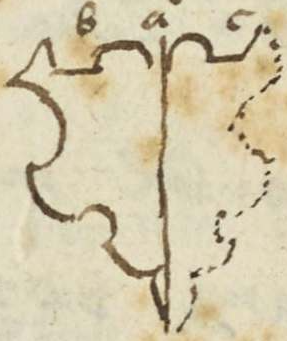 b a c